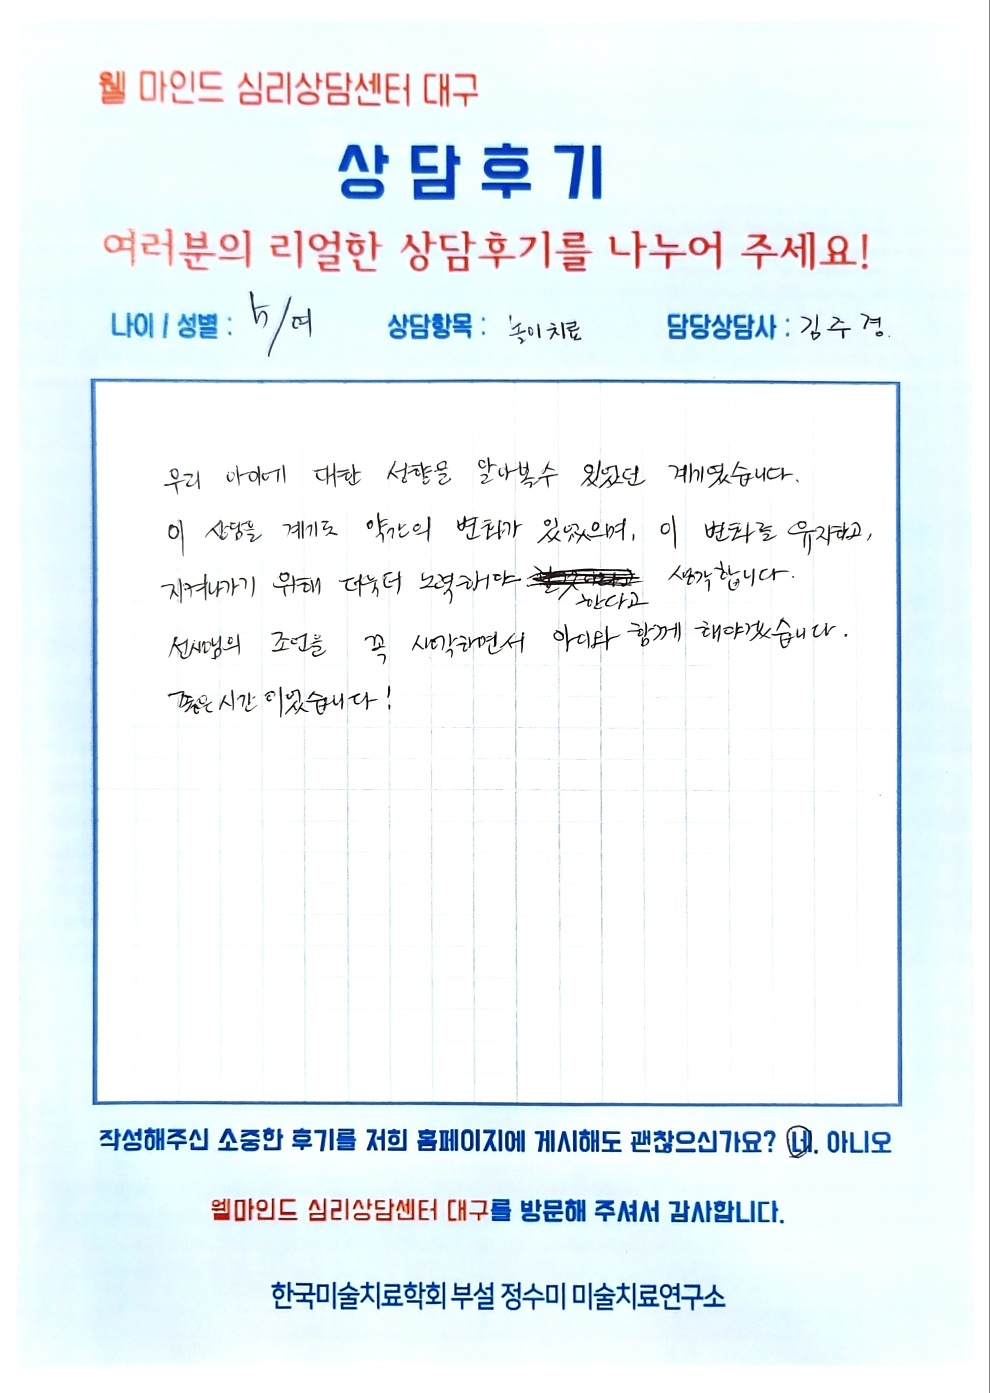 웰 마인드 심리상담센터 대구
상담후기
여러분의 리얼한 상담후기를 나누어 주세요!
나이 / 성별 : 5/여 상담항목 : 놀이치료 담당상담사 : 김주경.
우리 아이에 대한 성향을 알아볼수 있었던 계기였습니다.
이 상담을 계기로 약간의 변화가 있었으며, 이 변화를 유지하고,
지켜나가기 위해 더욱더 노력해야 한다고 생각합니다.
선생님의 조언을 꼭 생각하면서 아이와 함께 해야겠습니다.
좋은 시간 이었습니다!
작성해주신 소중한 후기를 저희 홈페이지에 게시해도 괜찮으신가요? 네. 아니오
웰마인드 심리상담센터 대구를 방문해 주셔서 감사합니다.
한국미술치료학회 부설 정수미 미술치료연구소